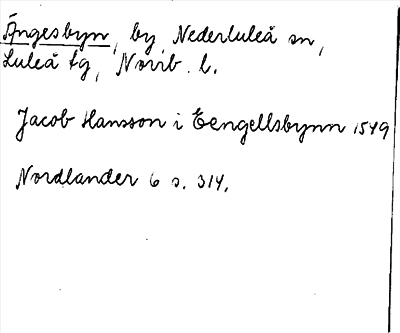 Ängesbyn, by, Nederluleå sn,
Luleå tg, Norrb. l.
Jacob Hansson i Eengellsbynn 1549
Nordlander 6 s. 314.